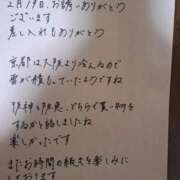 2月19日、お誘いありがとう
ございます
差し入れもありがとう
京都は大阪より冷えるので
雪が積もっていたようですね
阪神と阪急、どちらで買い物を
するかと話しましたね
楽しかったです
またお時間の続きを楽しみに
しております